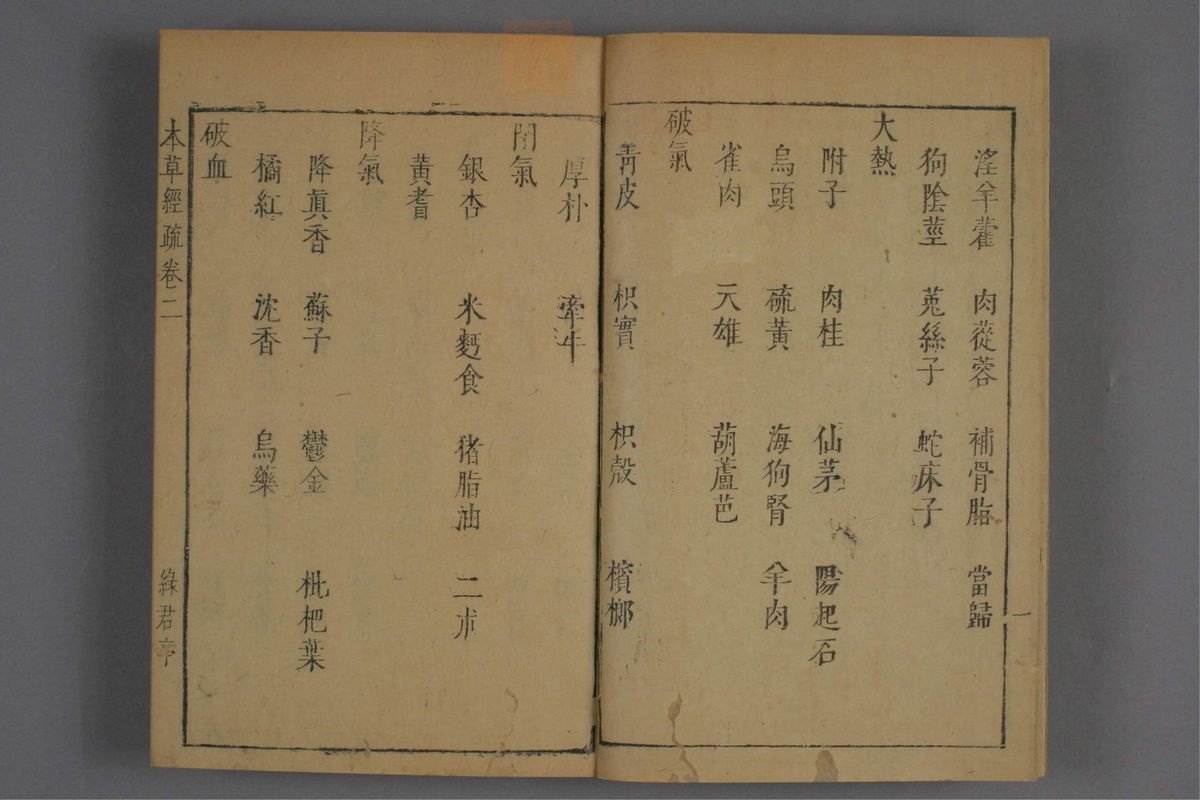 淫羊藿　肉蓯蓉　補骨脂　當歸
狗陰莖　菟絲子　蛇床子
大熱
附子　肉桂　仙茅　陽起石
烏頭　硫黃　海狗腎　羊肉
雀肉　天雄　葫蘆芭
破氣
靑皮　枳實　枳殼　檳榔
厚朴　牽牛
閉氣
銀杏　米麪食　猪脂油　二朮
黃耆
降氣
降眞香　蘇子　鬱金　枇杷葉
橘紅　沈香　烏藥
破血
本草經疏卷二　綠君亭